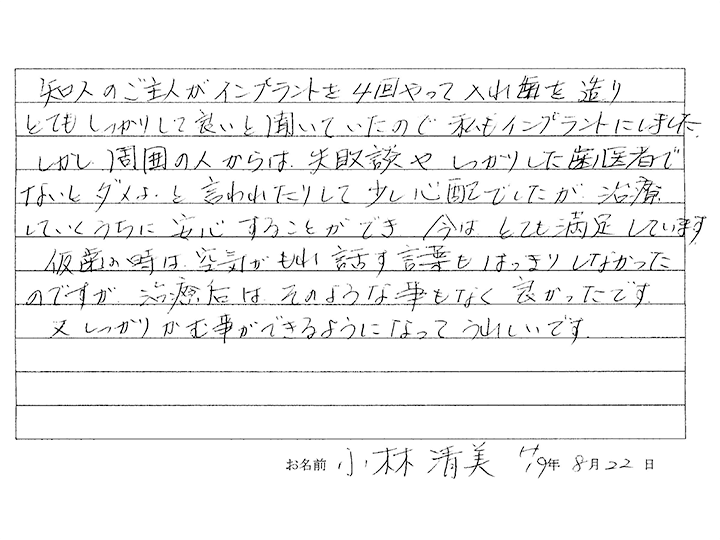 知人のご主人がインプラントを4回やって入れ歯を造り
とてもしっかりして良いと聞いていたので 私もインプラントにしました
しかし 周囲の人からは、失敗談や しっかりした歯医者で
ないとダメよ と言われたりして少し心配でしたが 治療
していくうちに 安心することができ 今は とても満足しています
仮歯の時は 空気がもれ 話す言葉もはっきりしなかった
のですが 治療后は そのような事もなく 良かったです
又 しっかりかむ事ができるようになって うれしいです.
お名前 小林 清美 H19年 8月22日